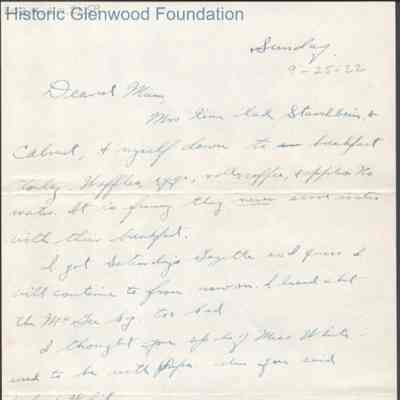 Historic Glenwood Foundation
Sunday
9-25-22
Dearest Mum,
Miss had
Cabinet, & myself down to breakfast
today. Waffles, eggs, rolls, coffee, & apples. No
water. It is funny they never serve water
with their breakfast.
I got Saturday's Gazette and guess I
will continue to from now on. I heard about
the McGee boy too bad
I thought you Miss White
used to be with Papa when you said